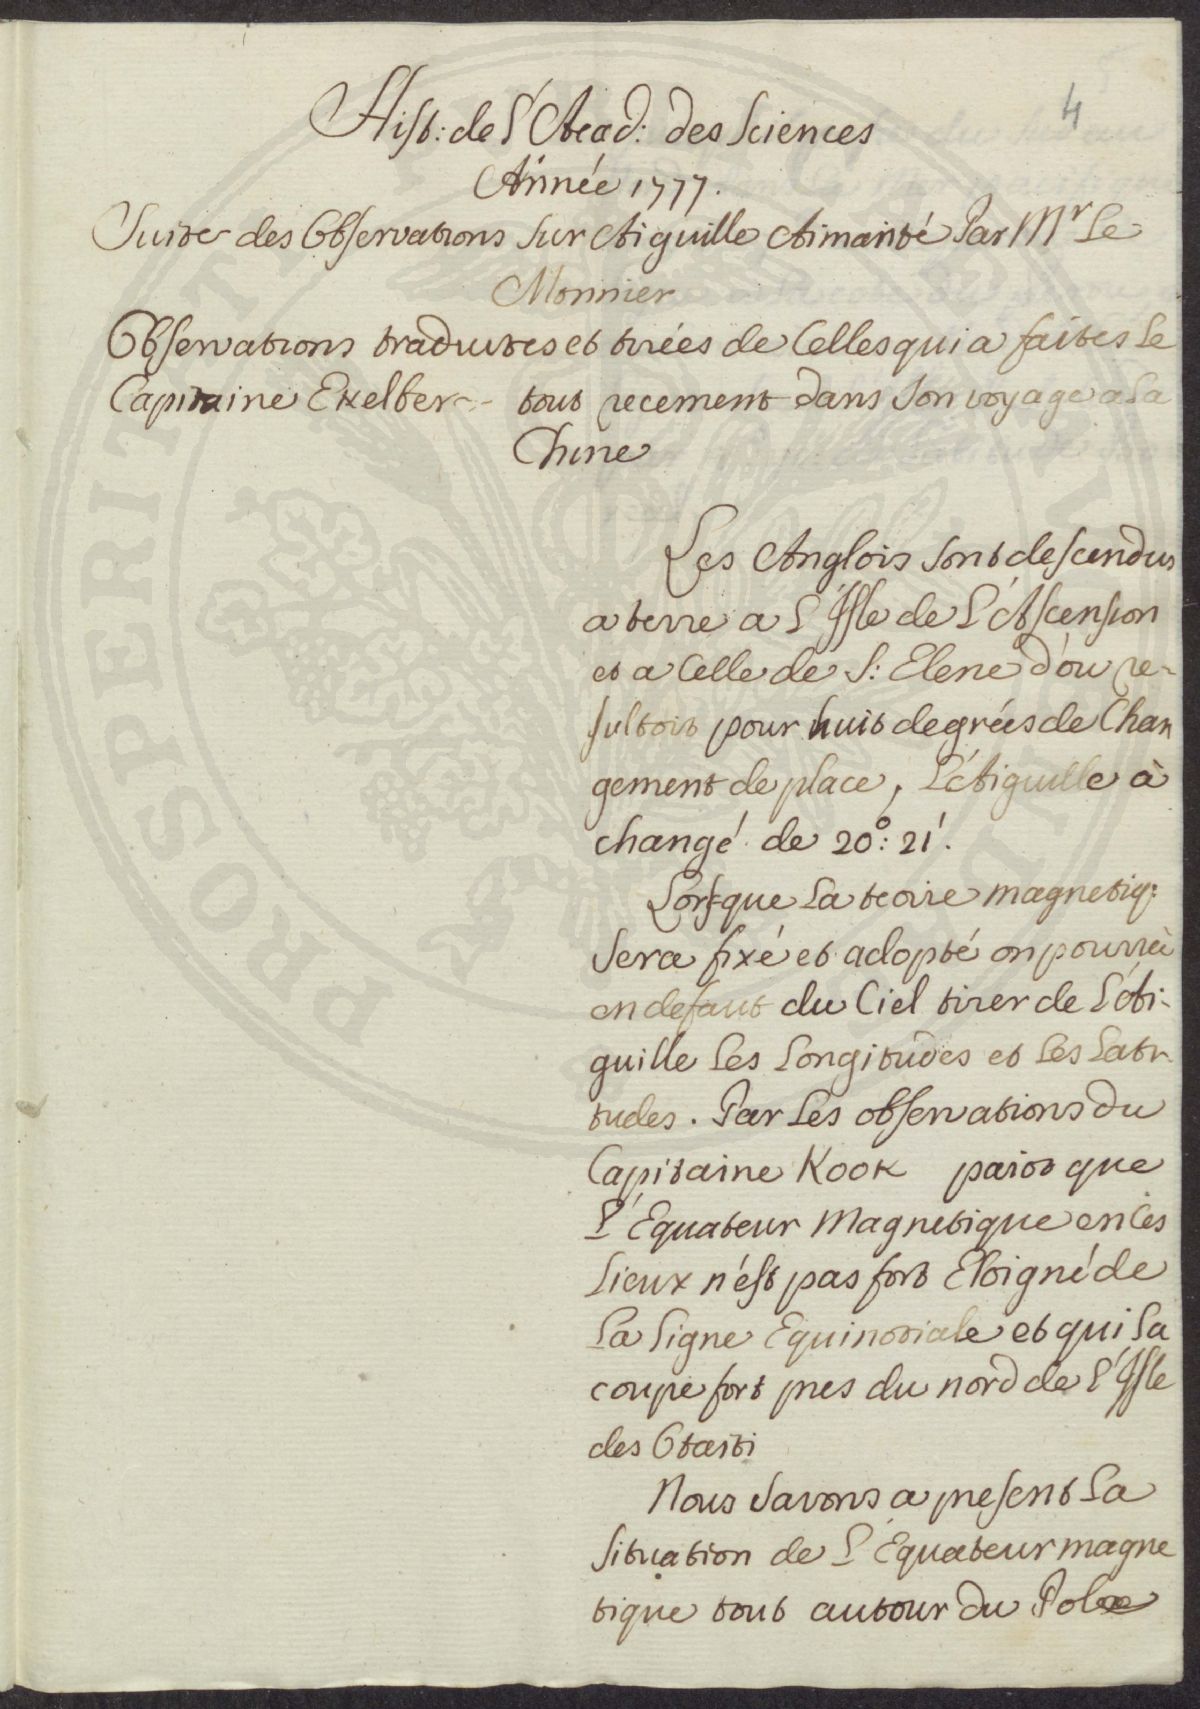 4
Hist: de l'Acad: des Sciences
Année 1777.
Suite des Observations sur Aiguille Aimanté Par Mr Le
Monnier
Observations traduites et tirées de Celles qui a faites le
Capitaine Ekelber tout recement dans son voyage a la
Chine
Les Anglois sont descendus
a terre a l'Isle de l'Ascension
et a Celle de S: Elene d'ou re-
sultoit pour huit degrées de Chan
gement de place, l'Aiguille à
changé de 20°: 21'.
Lorsque la teoire magnetiq:
sera fixé et adopté on pourrà
en defaut du Ciel tirer de l'Ai-
guille les Longitudes et les Lati-
tudes. Par les observations du
Capitaine Kook paiot que
l'Equateur Magnetique en Ces
Lieux n'ést pas fort Eloigné de
La Ligne Equinotiale et qui la
coupe fort pres du nord de l'Isle
des Otaiti
Nous savons a present la
situation de l'Equateur magne
tique tout autour du Pole
PROSPERITATI